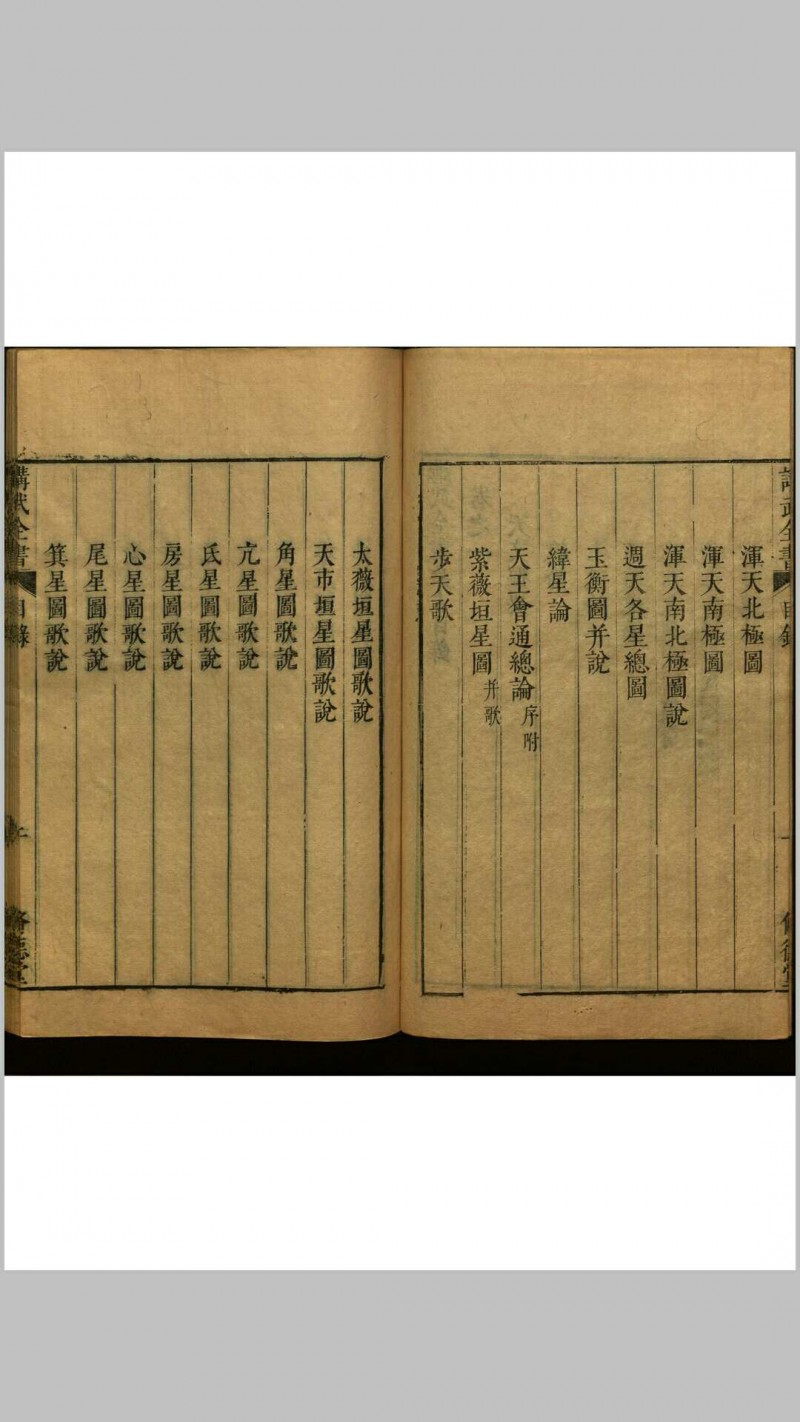 渾天北極圖
渾天南極圖
渾天南北極圖說
週天各星總圖
玉衡圖并說
緯星論
天王會通總論序附
紫薇垣星圖并歌
步天歌
太薇垣星圖歌說
天市垣星圖歌說
角星圖歌說
亢星圖歌說
氐星圖歌說
房星圖歌說
心星圖歌說
尾星圖歌說
箕星圖歌說
講武全書 目錄